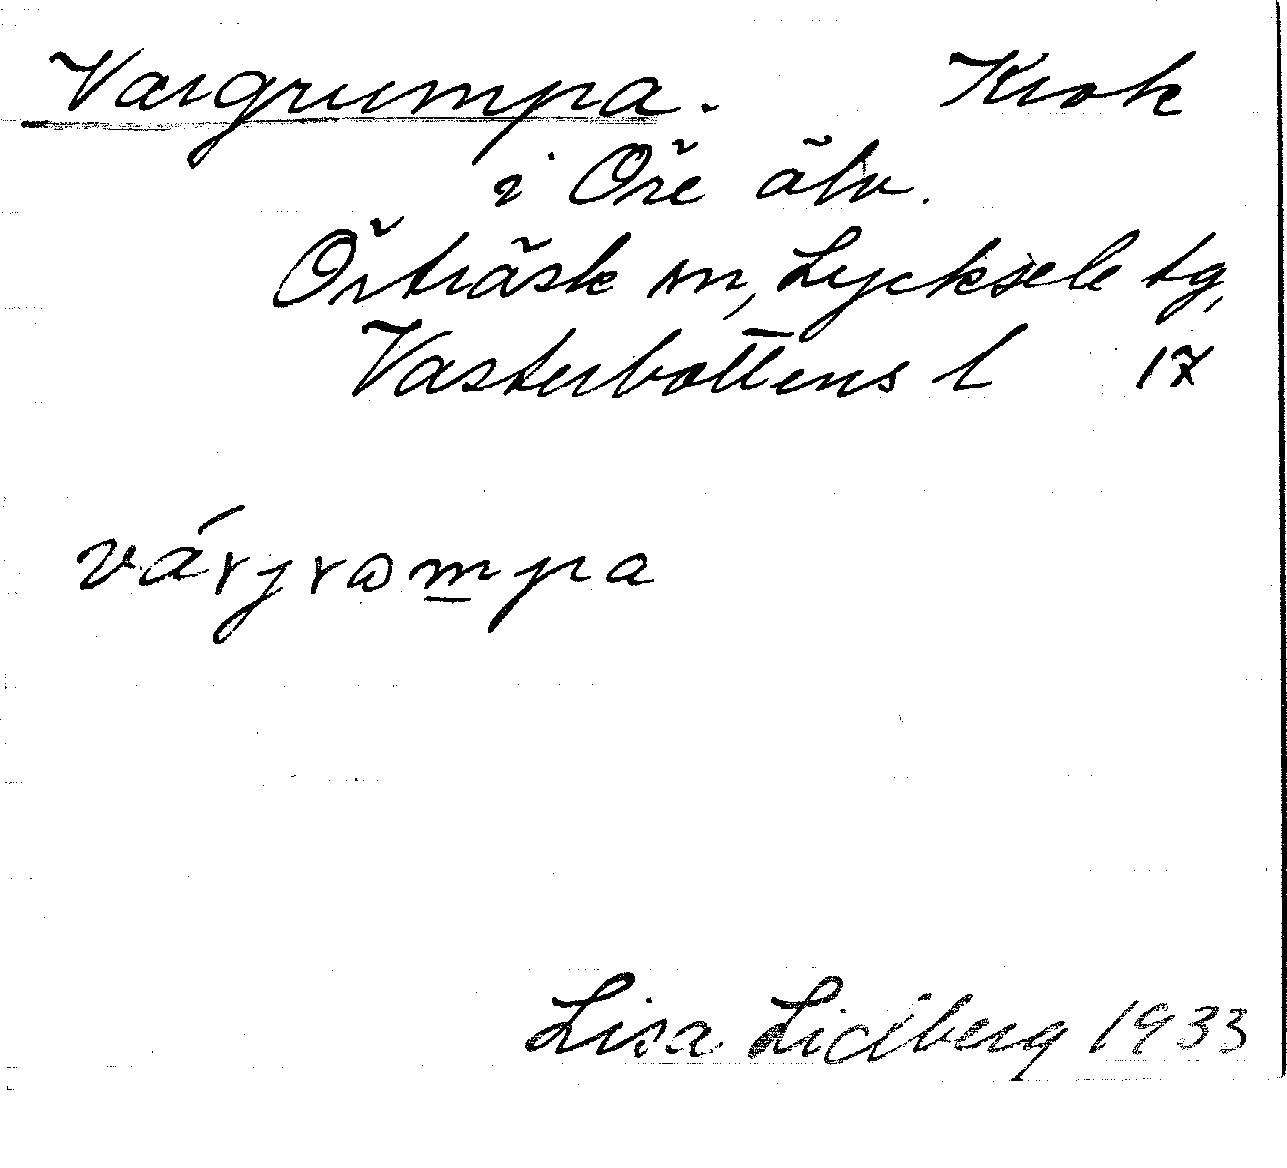 Vargrumpa. Krok
i Öre älv.
Örträsk sn, Lycksele tg,
Västerbottens l 17
várgrɷm̲pa
Lisa Lidberg 1933